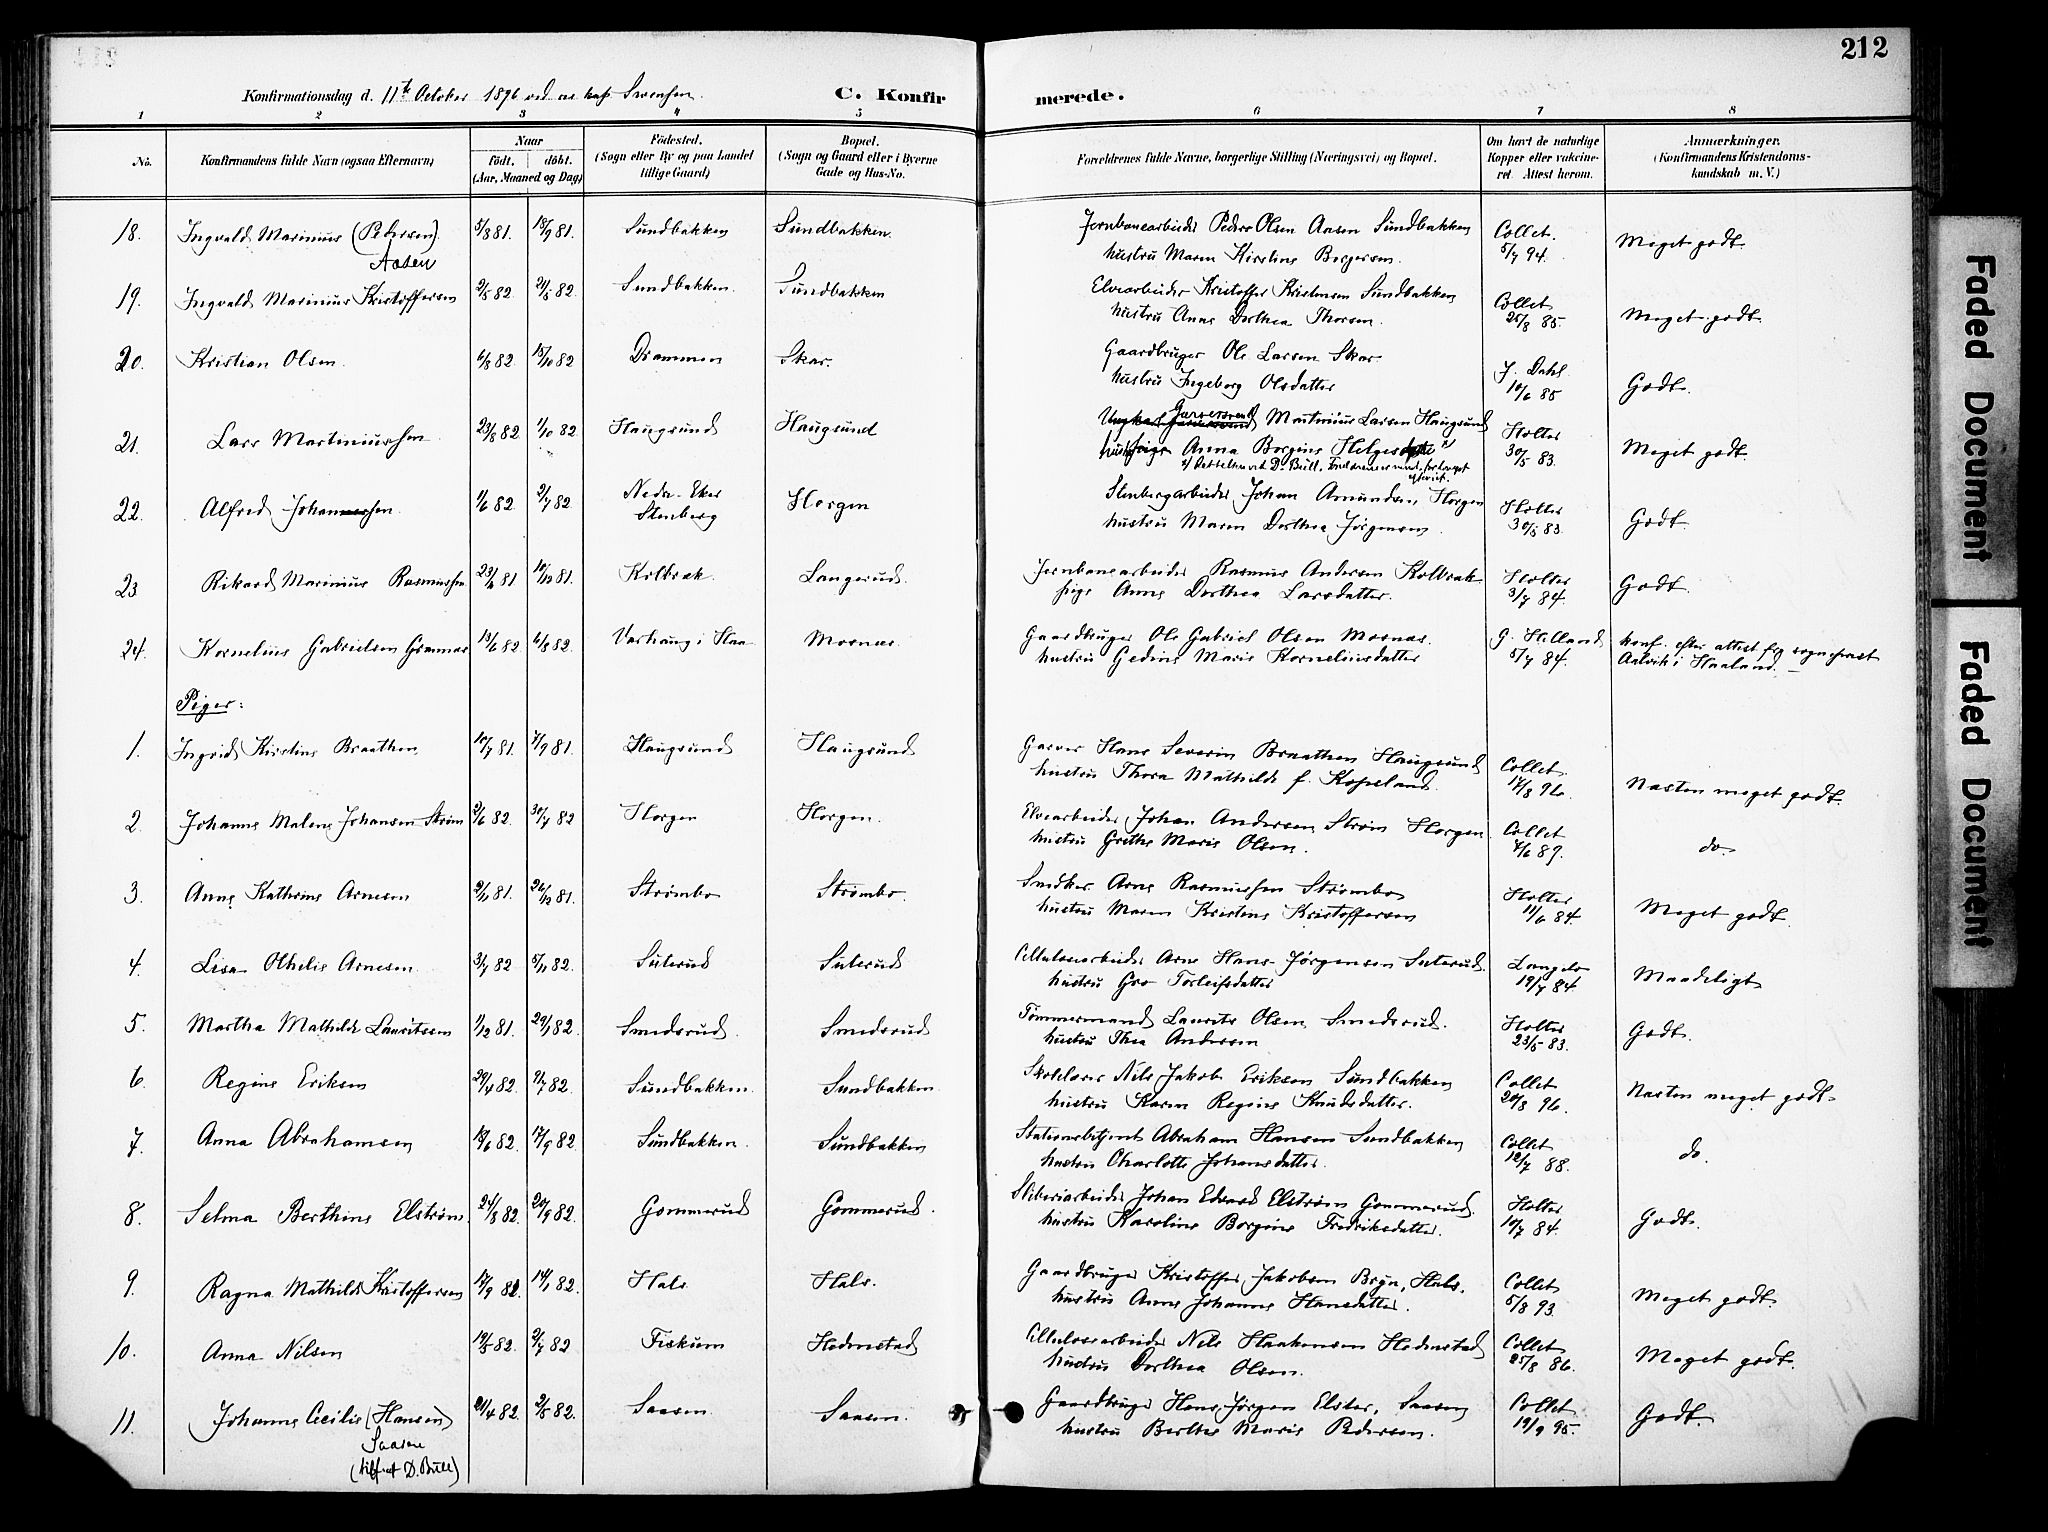 212
Konfirmationsdag d. 11te October 1896 ved
C. Konfirmerede.
1 2 3 4 5 6 7 8
No. Konfirmandens fulde Navn (ogsaa Efternavn) Naar födt. döbt. (Aar, Maaned og Dag) Födested. (Sogn eller By og paa Landet tillige Gaard) Bopæl. (Sogn og Gaard eller i Byerne Gade og Hus-No. Forældrenes fulde Navne, borgerlige Stilling (Næringsvei) og Bopæl. Om havt de naturlige Kopper eller vakcineret. Attest herom. Anmærkninger. (Konfirmandens Kristendomskundskab m. V.)
18. Ingvald Marinius (Pedersen) 5/8 81. 18/9 81. Sundbakken Sundbakken. Jernbanearbeider Peder Olsen Aasen Sundbakken Collet. Meget godt.
Aasen hustru Maren Kirstine Borgersen. 5/7 94.
19. Ingvald Marinius Kristoffersen 2/5 82. 21/5 82. Sundbakken. Sundbakken Elvearbeider Kristoffer Kristensen Sundbakken Collet Meget godt.
hustru Anne Dorthea Thorsen. 25/8 85.
20. Kristian Olsen. 6/8 82. 15/10 82 Drammen Skar. Gaardbruger Ole Larsen Skar J. Dahl Godt.
hustru Ingeborg Olsdatter 10/6 85
21. Lars Martiniussen 23/8 82. 1/10 82 Haugsund Haugsund Garversvend Martinius Larsen Haugsund Holter Meget godt.
Anna Borgine Helgesd 30/5 83.
22. Alfred Johansen. 1/6 82 2/7 82 Nedre-Eker Horgen Stenbergarbeider Johan Amundsen, Horgen Holter Godt.
Stenberg hustru Maren Dorthea Jørgensen 30/5 83.
23 Rikard Marinius Rasmussen 23/6 81 10/12 81. Kolbræk. Langerud. Jernbanearbeider Rasmus Andersen Kolbræk Holter Godt.
pige Anne Dorthea Larsdatter. 3/7 84.
24. Kornelius Gabrielsen Grannæs 13/6 82 6/8 82 Varhaug i Haa Mosnæs. Gaardbruger Ole Gabriel Olsen Mosnæs. G. Helland konf. efter attest fra sogneprest
hustru Gedine Marie Korneliusdatter 5/7 84. Aalvik i Haaland.
Piger:
1. Ingrid Kirstine Braathen 10/7 81. 4/9 81. Haugsund Haugsund Garver Hans Severin Braathen Haugsund Collet. Næsten meget godt.
hustru Thora Mathilde f. Kopeland. 17/8 96.
2. Johanne Malene Johansen Strøm 2/6 82. 30/7 82 Horgen Horgen. Elvearbeider Johan Andersen Strøm Horgen Collet do.
hustru Grethe Marie Olsen. 4/6 89.
3. Anne Kathrine Arnesen 2/11 81. 26/12 81. Strømbo Strømbo. Snedker Arne Rasmussen Strømbo Holter Meget godt.
hustru Maren Kristine Kristoffersen 11/6 84.
4. Lisa Othelie Arnesen 3/7 82 5/11 82. Suterud Suterud Cellulosearbeider Arne Hans Jørgensen Suterud. Langelo Maadeligt
hustru Gro Torleifsdatter 19/7 84
5. Martha Mathilde Lauritsen 1/12 81. 29/1 82. Smedsrud Smedsrud Tømmermand Laurits Olsen Smedsrud. Holter Godt.
hustru Thea Andersen 23/5 83.
6. Regine Eriksen 29/4 82. 9/7 82. Sundbakken. Sundbakken. Skolelærer Nils Jakob Eriksen Sundbakken Collet Næsten meget godt.
hustru Karen Regine Knudsdatter. 20/8 96.
7. Anna Abrahamsen 18/6 82. 17/9 82. Sundbakken. Sundbakken Stationsbetjent Abraham Hansen Sundbakken Collet do.
hustru Charlotte Johansdatter. 12/7 88.
8. Selma Berthine Elstrøm. 24/8 82. 20/9 82. Gommerud Gommerud. Sliberiarbeider Johan Edvard Elstrøm Gommerud. Holter Godt.
hustru Karoline Borgine Fredriksdatter. 10/7 84.
9. Ragna Mathilde Kristoffersen 17/9 81. 14/1 82. Hals Hals. Gaardbruger Kristoffer Jakobsen Bryn, Hals. Collet Meget godt.
hustru Anne Johanne Hansdatter. 5/8 93.
10. Anna Nilsen 19/5 82. 2/7 82 Fiskum Hedenstad Cellulosearbeider Nils Haakonsen Hedenstad Collet Meget godt.
hustru Dorthea Olsen. 25/8 86.
11. Johanne Cecilie (Hansen) 21/4 82. 2/5 82. Saasen. Saasen. Gaardbruger Hans Jørgen Elster, Saasen Collet Godt.
Saasen hustru Berthe Marie Pedersen. 19/9 95.
(tilført D. Bull)
Faded Document
Faded Document